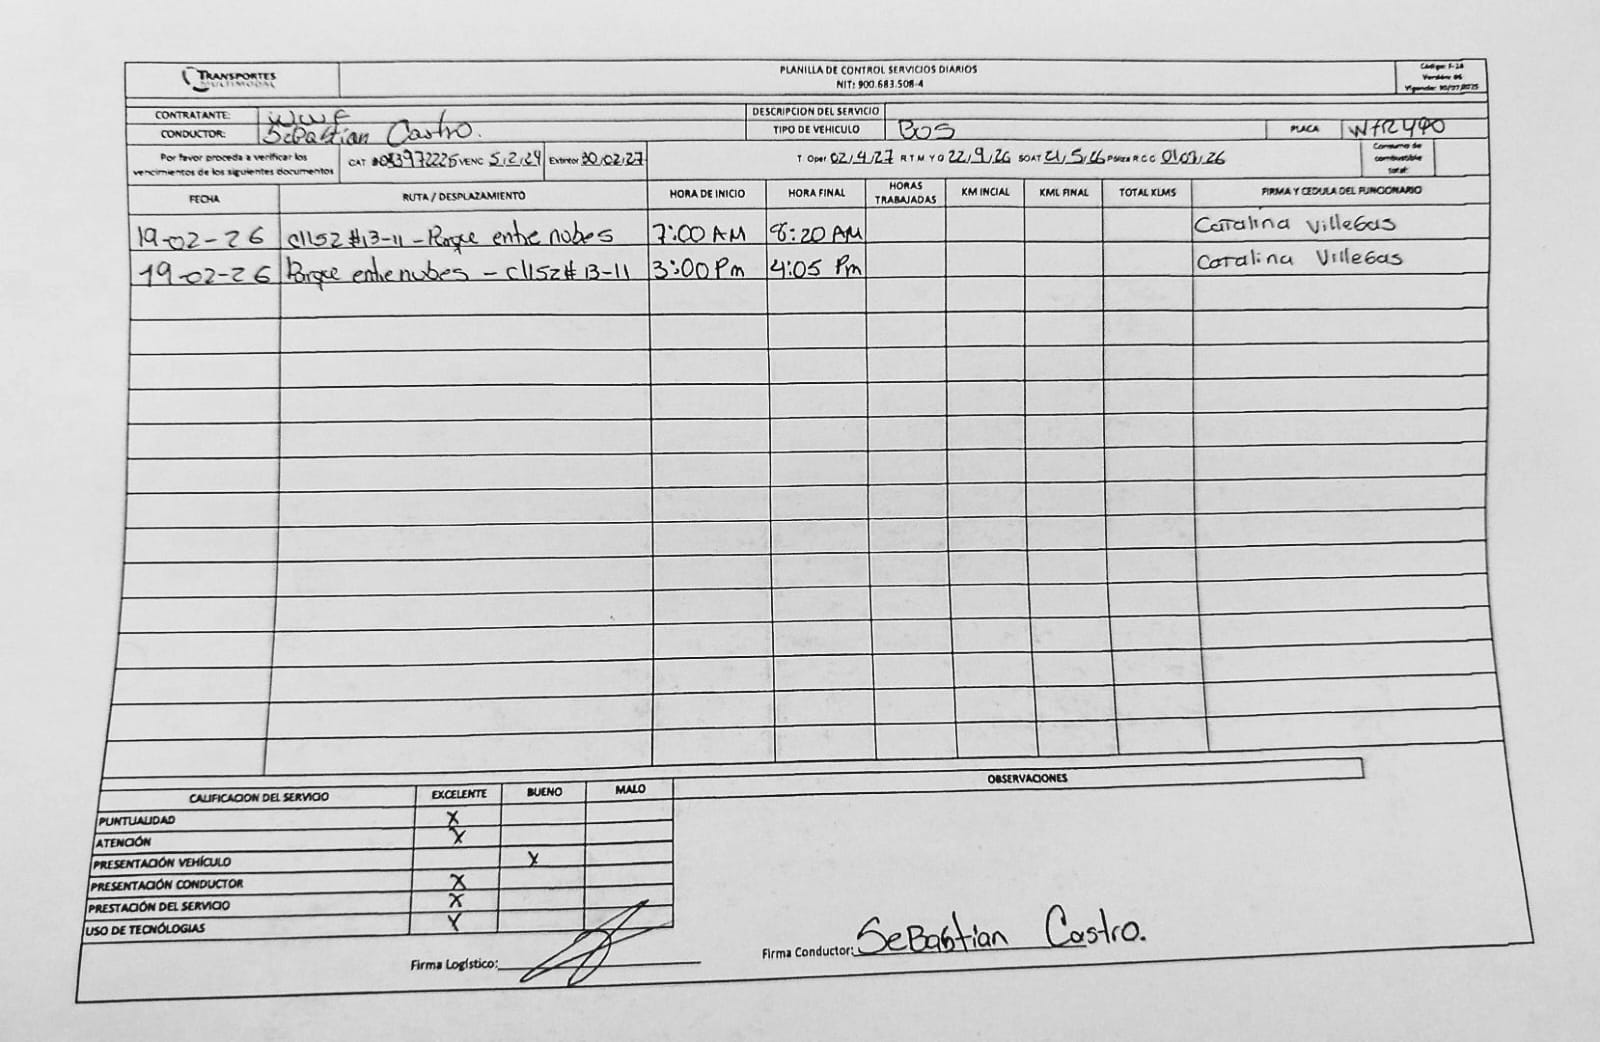 TRANSPORTES
MULTIMODAL
PLANILLA DE CONTROL SERVICIOS DIARIOS
NIT: 900.683.508-4
Código: F-28
Versión: 06
CONTRATANTE: WWF
DESCRIPCION DEL SERVICIO
CONDUCTOR: SeBastian Castro.
TIPO DE VEHICULO BOS
PLACA
Por favor proceda a verificar los
vencimientos de los siguientes documentos
CAT VENC 5,2,29 Extintor 30,02,27
T. Oper 02,4,27 R T M Y G 22,9,26 SOAT Póliza R C C
Consumo de
combustible
total:
FECHA RUTA / DESPLAZAMIENTO HORA DE INICIO HORA FINAL HORAS TRABAJADAS KM INCIAL KML FINAL TOTAL KLMS FIRMA Y CEDULA DEL FUNCIONARIO
19-02-26 cll52 #13-11 - Parque entre nubes 7:00 AM 8:20 AM Catalina Villegas
19-02-26 Parque entre nubes - cll52# 13-11 3:00 Pm 4:05 Pm Catalina Villegas
OBSERVACIONES
CALIFICACION DEL SERVICIO EXCELENTE BUENO MALO
PUNTUALIDAD X
ATENCIÓN X
PRESENTACIÓN VEHÍCULO X
PRESENTACIÓN CONDUCTOR X
PRESTACIÓN DEL SERVICIO X
USO DE TECNÓLOGIAS X
Firma Logístico:
Firma Conductor: SeBastian Castro.